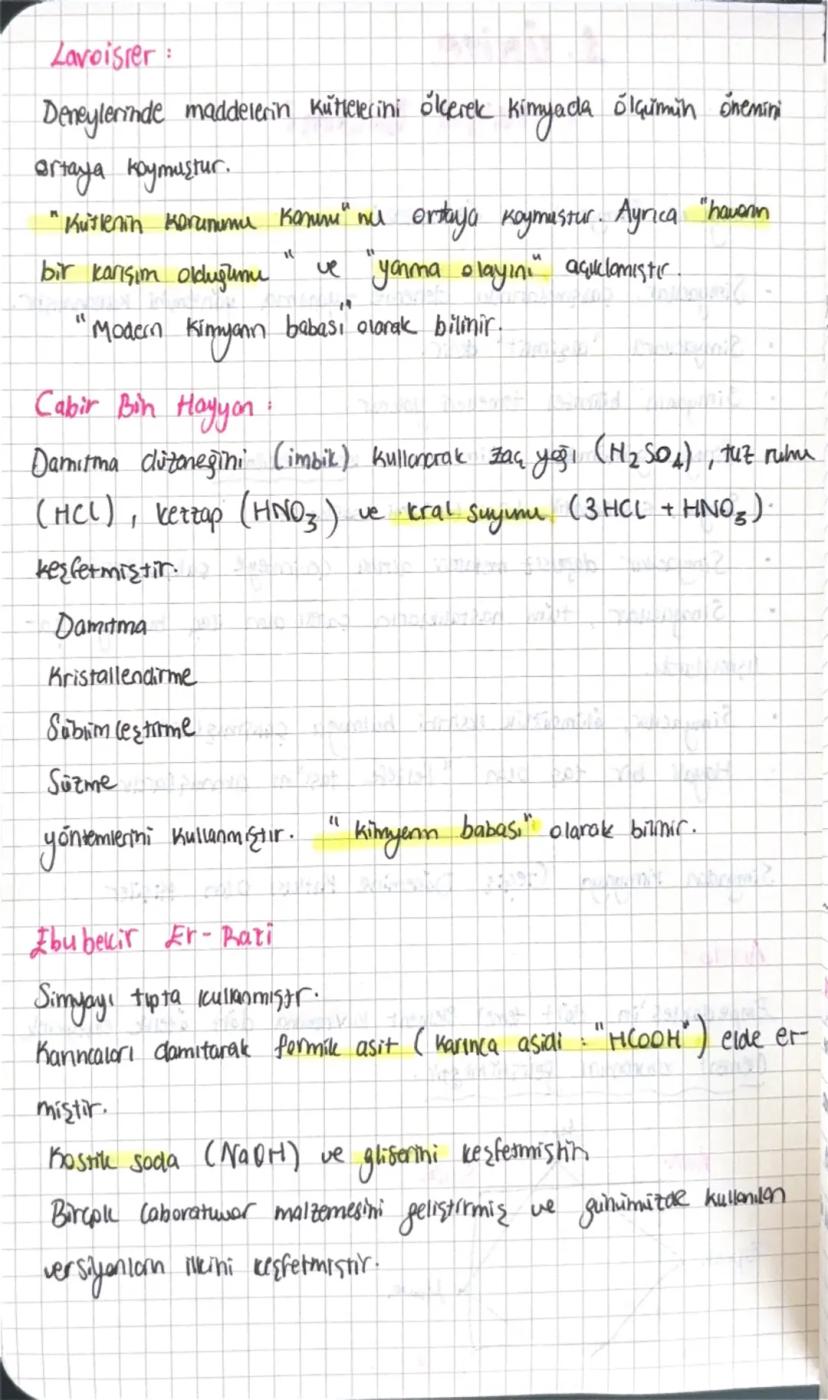 Lavoisier :
Deneylerinde maddelerin kütlelerini ölçerek kimyada ölçümün önemini
ortaya koymuştur.
"Kütlenin Korunumu Kanunu" nu ortaya koymuştur. Ayrıca "havanın
bir karışım olduğunu" ve "yanma olayını" açıklamıştır.
"Modern Kimyanın babası" olarak bilinir.
Cabir Bin Hayyan :
Damıtma düzeneğini (imbik) kullanarak zaç yağı (H₂SO₄), tuz ruhu
(HCL), kezzap (HNO₃) ve kral suyunu (3HCL + HNO₃)
keşfetmiştir.
Damıtma
Kristallendirme
Süblimleştirme
Süzme
yöntemlerini kullanmıştır. "Kimyanın babası" olarak bilinir.
Ebubekir Er-Razi
Simyayı tıpta kullanmıştır.
Karıncaları damıtarak formik asit (karınca asidi : "HCOOH") elde et-
miştir.
Kostik soda (NaOH) ve gliserini keşfetmiştir.
Birçok laboratuvar malzemesini geliştirmiş ve günümüzde kullanılan
versiyonların ilkini keşfetmiştir.